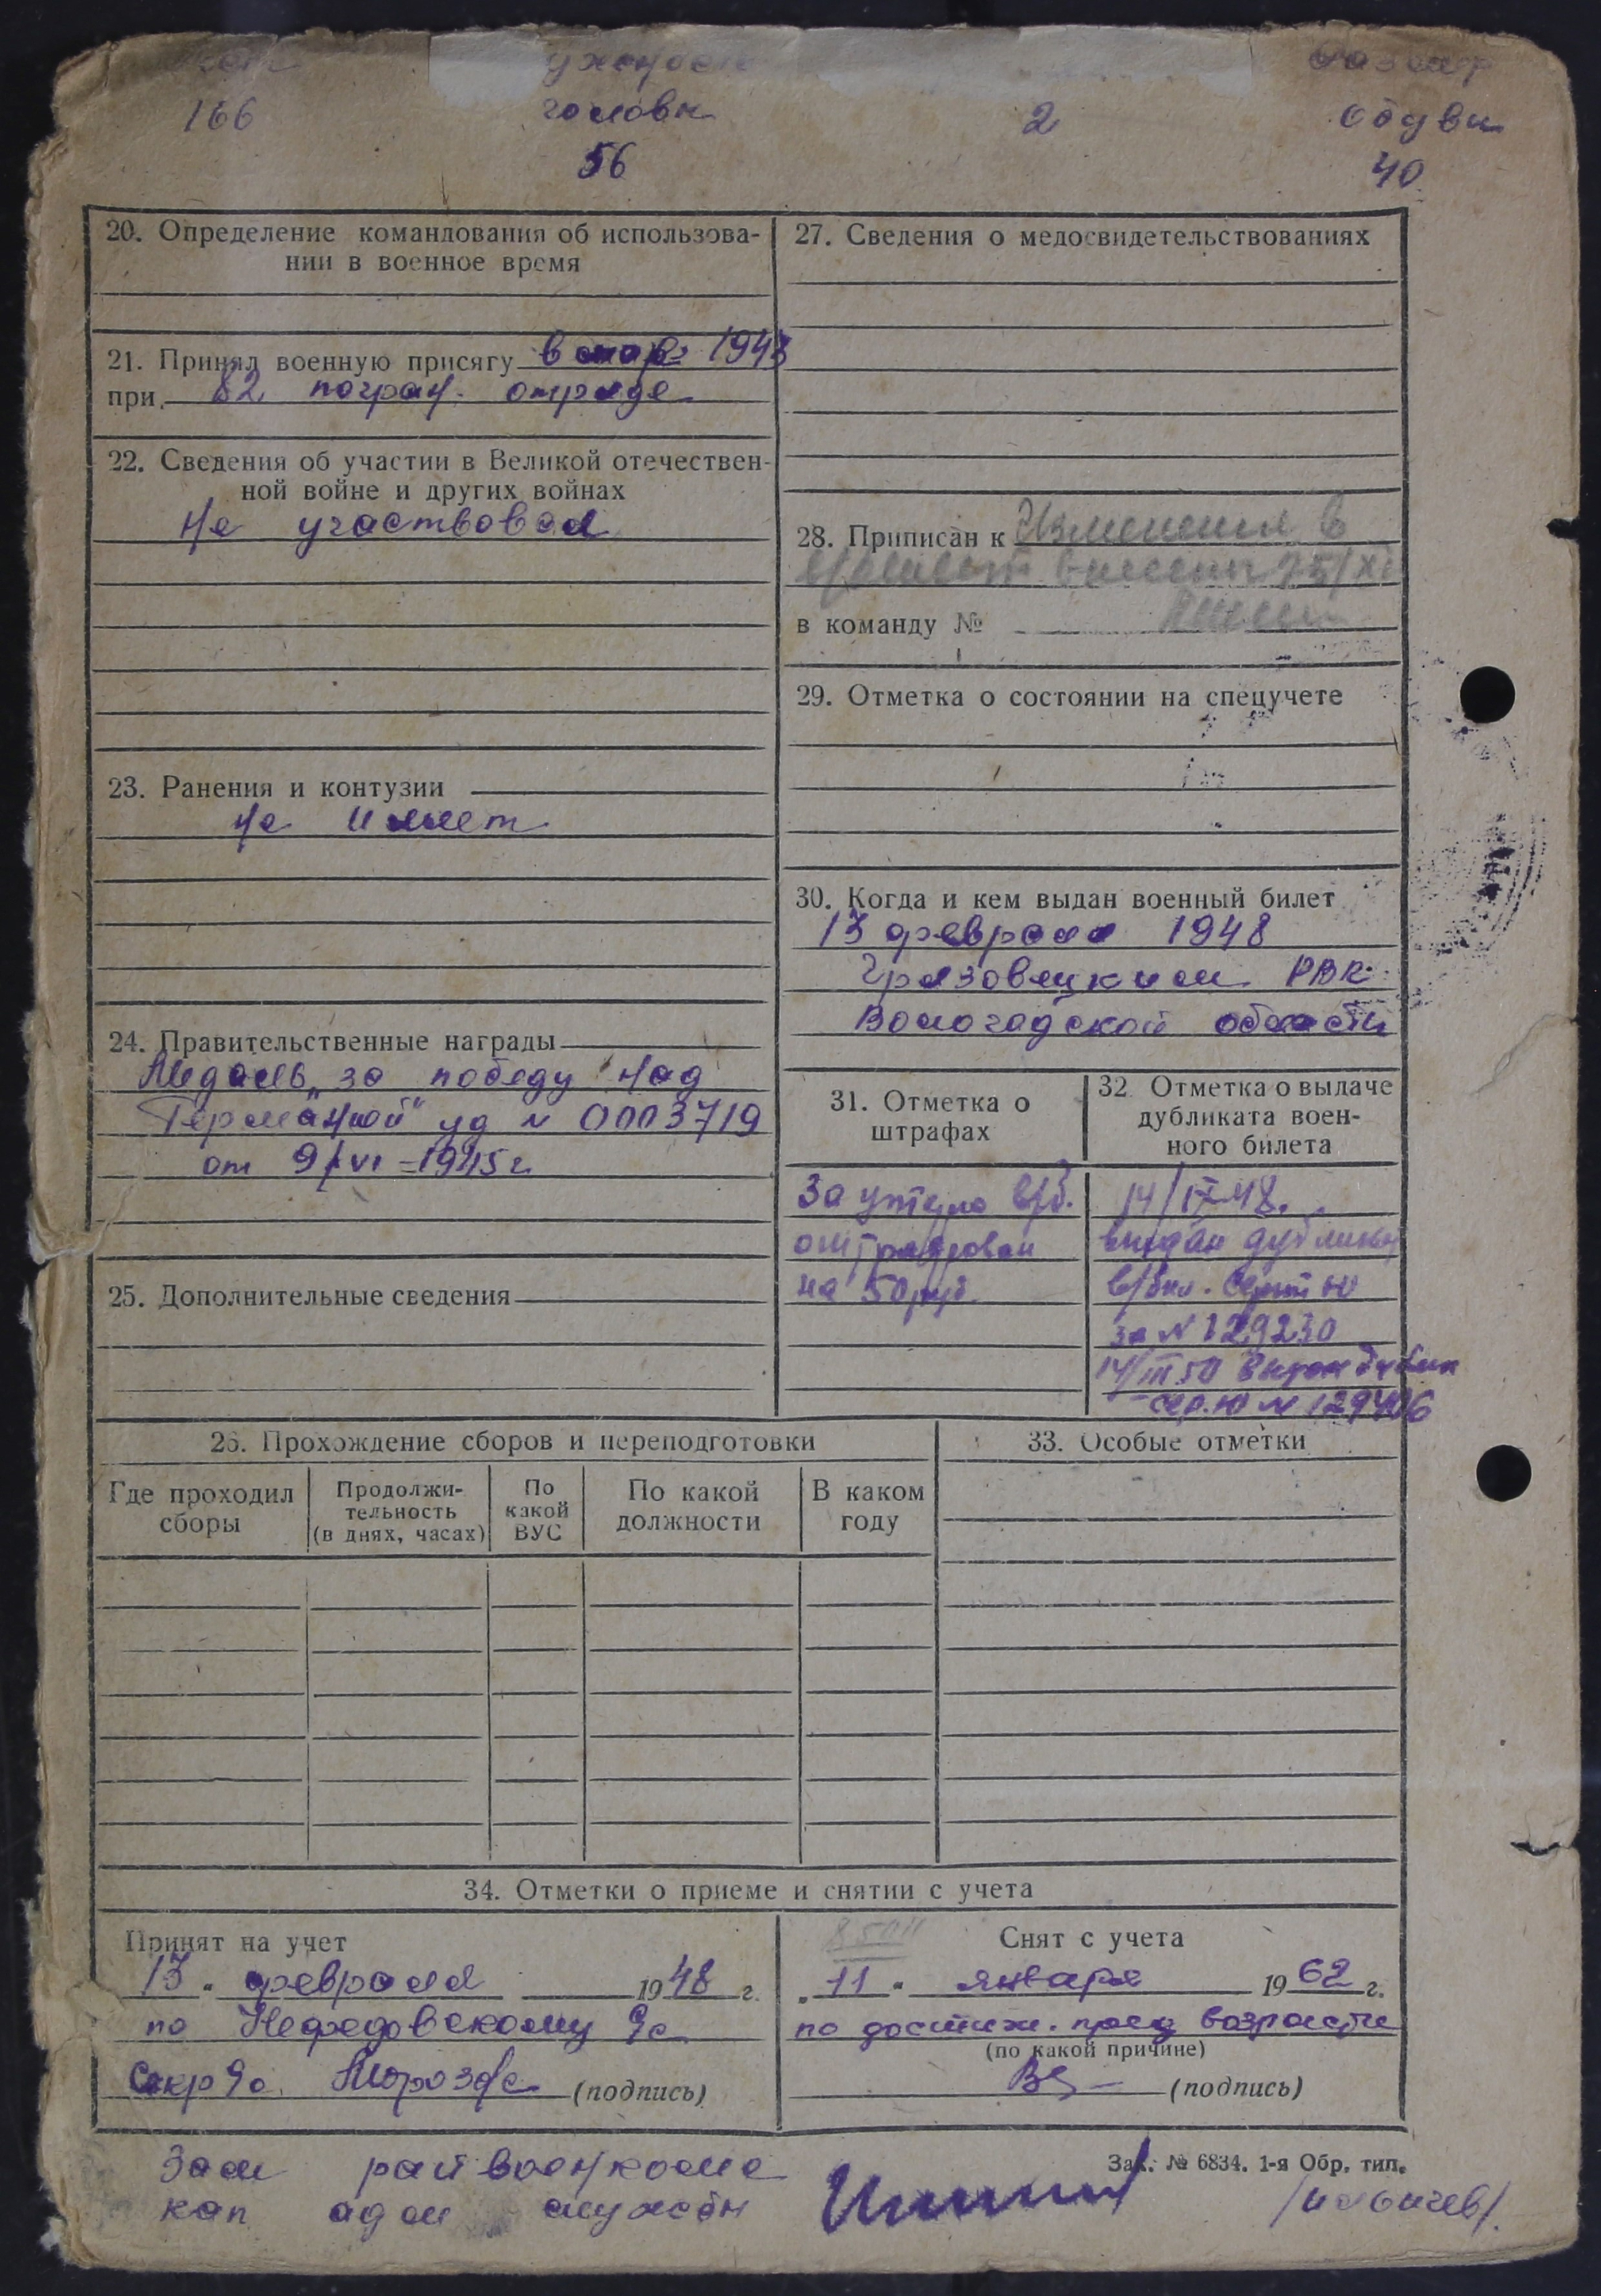 166
головы
2
обуви
56
40
20. Определение командования об использова-
нии в военное время
21. Принял военную присягу 1943
при 82 погран. отряде
22. Сведения об участии в Великой отечествен-
ной войне и других войнах
Не участвовал
23. Ранения и контузии
не имеет
24. Правительственные награды
Медаль „за победу над
Германией" уд № 0003719
от 9/VI-1945 г.
25. Дополнительные сведения
27. Сведения о медосвидетельствованиях
28. Приписан к Изменения в
внесены 25/XI
в команду №
29. Отметка о состоянии на спецучете
30. Когда и кем выдан военный билет
13 февраля 1948
Грязовецким РВК
Вологодской области
31. Отметка о
штрафах
За утерю в/б.
оштрафован
на 50 руб.
32. Отметка о выдаче
дубликата воен-
ного билета
14/IX-48.
выдан дубликат
в/бил. серии Ю
за № 129230
14/III 50 выдан дублик
сер. Ю № 129406
26. Прохождение сборов и переподготовки
Где проходил
сборы
Продолжи-
тельность
(в днях, часах)
По
какой
ВУС
По какой
должности
В каком
году
33. Особые отметки
34. Отметки о приеме и снятии с учета
Принят на учет
13 " февраля 1948 г.
по Нефедовскому
Секр Морозова (подпись)
Снят с учета
„ 11 " января 1962 г.
по достиж. пред возраста
(по какой причине)
(подпись)
Зак. № 6834. 1-я Обр. тип.
Зам райвоенкома
кап адм службы
/Ильичев/.